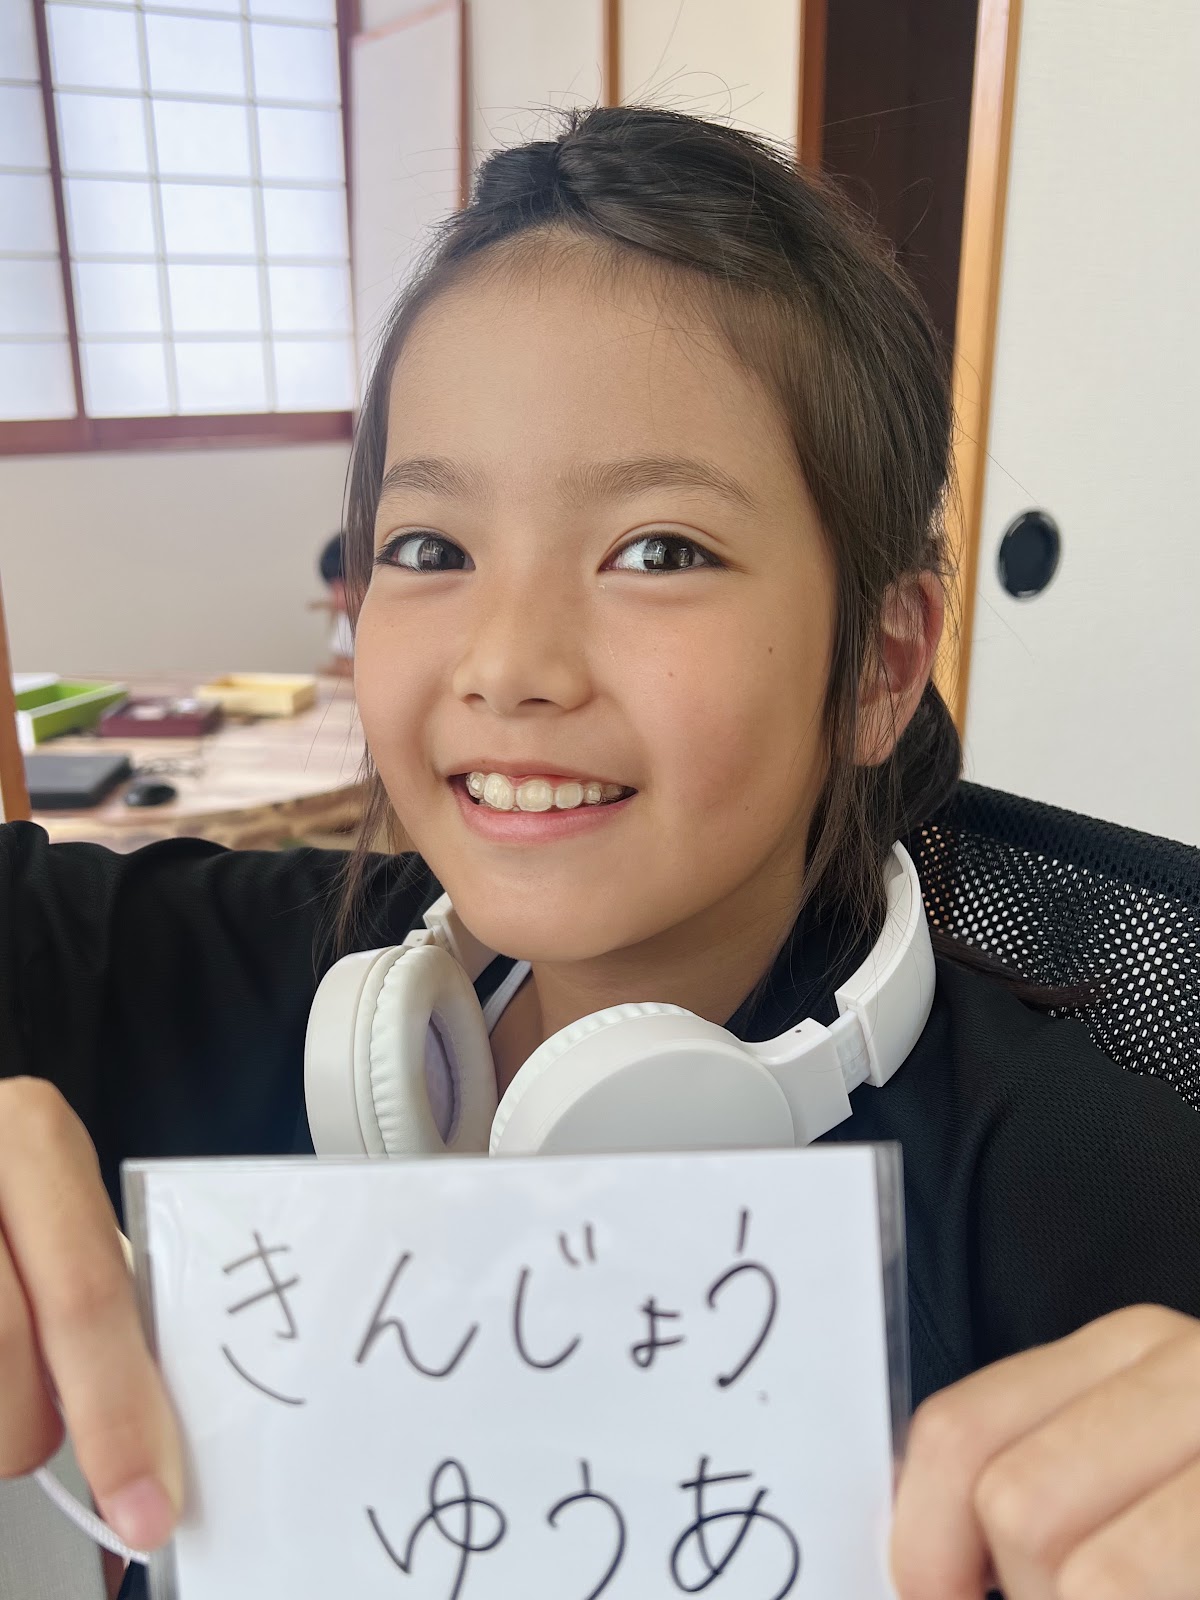 きんじょう
ゆうあ